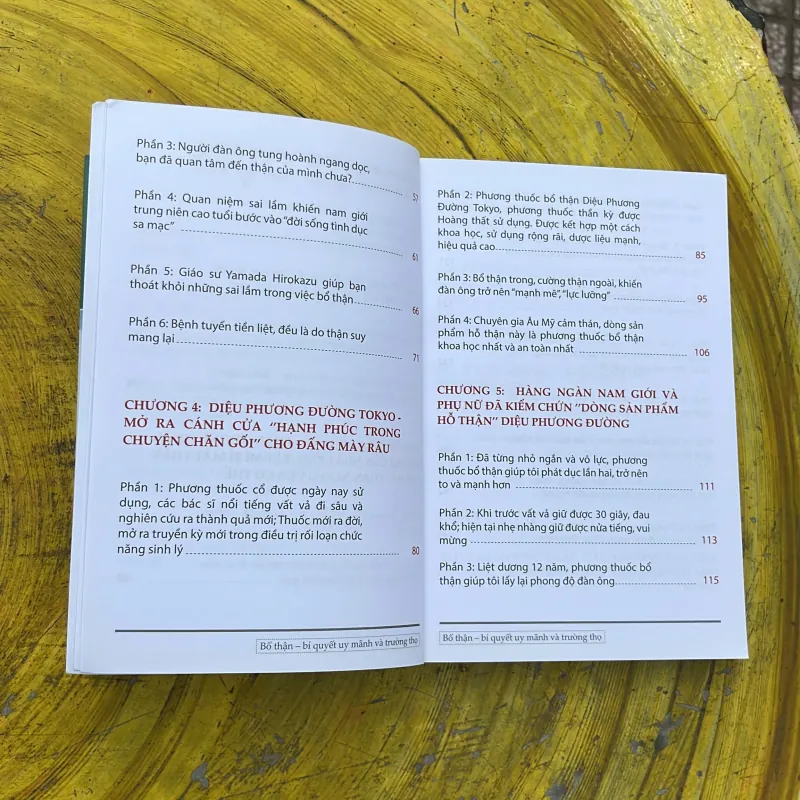 Phần 3: Người đàn ông tung hoành ngang dọc,
bạn đã quan tâm đến thận của mình chưa? 57
Phần 4: Quan niệm sai lầm khiến nam giới
trung niên cao tuổi bước vào “đời sống tình dục
sa mạc” 61
Phần 5: Giáo sư Yamada Hirokazu giúp bạn
thoát khỏi những sai lầm trong việc bổ thận 66
Phần 6: Bệnh tuyến tiền liệt, đều là do thận suy
mang lại 71
CHƯƠNG 4: DIỆU PHƯƠNG ĐƯỜNG TOKYO -
MỞ RA CÁNH CỬA “HẠNH PHÚC TRONG
CHUYỆN CHĂN GỐI” CHO ĐẤNG MÀY RÂU
Phần 1: Phương thuốc cổ được ngày nay sử
dụng, các bác sĩ nổi tiếng vất vả đi sâu và
nghiên cứu ra thành quả mới; Thuốc mới ra đời,
mở ra truyền kỳ mới trong điều trị rối loạn chức
năng sinh lý 80
Bổ thận – bí quyết uy mãnh và trường thọ
Phần 2: Phương thuốc bổ thận Diệu Phương
Đường Tokyo, phương thuốc thần kỳ được
Hoàng thất sử dụng. Được kết hợp một cách
khoa học, sử dụng rộng rãi, dược liệu mạnh,
hiệu quả cao 85
Phần 3: Bổ thận trong, cường thận ngoài, khiến
đàn ông trở nên “mạnh mẽ”, “lực lưỡng” 95
Phần 4: Chuyên gia Âu Mỹ cảm thán, dòng sản
phẩm hỗ thận này là phương thuốc bổ thận
khoa học nhất và an toàn nhất 106
CHƯƠNG 5: HÀNG NGÀN NAM GIỚI VÀ
PHỤ NỮ ĐÃ KIỂM CHỨN “DÒNG SẢN PHẨM
HỖ THẬN” DIỆU PHƯƠNG ĐƯỜNG
Phần 1: Đã từng nhỏ ngắn và vô lực, phương
thuốc bổ thận giúp tôi phát dục lần hai, trở nên
to và mạnh hơn 111
Phần 2: Khi trước vất vả giữ được 30 giây, đau
khổ; hiện tại nhẹ nhàng giữ được nửa tiếng, vui
mừng 113
Phần 3: Liệt dương 12 năm, phương thuốc bổ
thận giúp tôi lấy lại phong độ đàn ông 115
Bổ thận – bí quyết uy mãnh và trường thọ